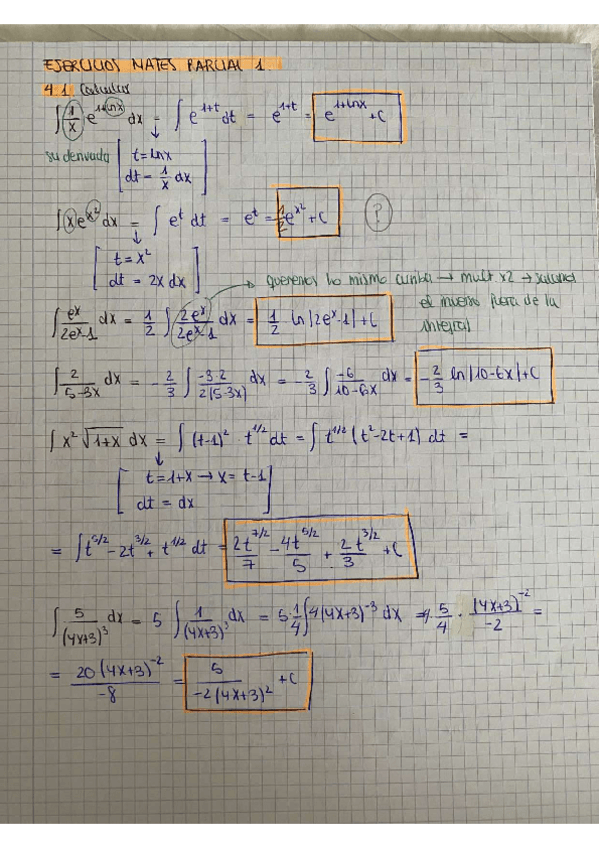 EJERCICIOS MATES PARCIAL 1.
4.1. Calcular
∫ (1/x) e^(1+lnx) dx = ∫ e^(1+t) dt = e^(1+t) = e^(1+lnx) + C
su derivada [ t = lnx
dt = 1/x dx ]
∫ x e^(x²) dx = ∫ e^t dt = e^t = 1/2 e^(x²) + C (?)
[ t = x²
dt = 2x dx ]
→ queremos lo mismo arriba → mult x2 → sacamos
el inverso fuera de la
integral
∫ e^x/(2e^x-1) dx = 1/2 ∫ 2e^x/(2e^x-1) dx = 1/2 ln|2e^x-1| + C
∫ 2/(5-3x) dx = -2/3 ∫ (-3·2)/(2(5-3x)) dx = -2/3 ∫ -6/(10-6x) dx = -2/3 ln|10-6x| + C
∫ x² √(1+x) dx = ∫ (t-1)² · t^(1/2) dt = ∫ t^(1/2) (t²-2t+1) dt =
[ t = 1+x → x = t-1
dt = dx ]
= ∫ t^(5/2) - 2t^(3/2) + t^(1/2) dt = 2t^(7/2)/7 - 4t^(5/2)/5 + 2t^(3/2)/3 + C
∫ 5/(4x+3)³ dx = 5 ∫ 1/(4x+3)³ dx = 5·1/4 ∫ 4(4x+3)^-3 dx = 5/4 · (4x+3)^-2/-2 =
= 20(4x+3)^-2/-8 = 5/(-2(4x+3)²) + C